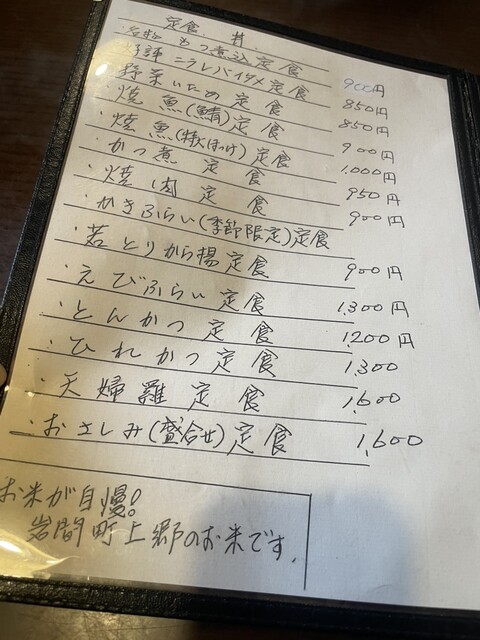 定食 丼.
名物 もつ煮込定食 900円
好評 ニラレバイタメ定食 850円
野菜いため定食 850円
・焼魚(鯖)定食 900円
・焼魚(特大ほっけ)定食 1,000円
・かつ煮定食 950円
・焼肉定食 900円
・かきふらい(季節限定)定食
・若とりから揚定食 900円
・えびふらい定食 1,300円
・とんかつ定食 1200円
・ひれかつ定食 1,300
・天婦羅定食 1,600
・おさしみ(盛合せ)定食 1,600
お米が自慢!
岩間町上郷のお米です.